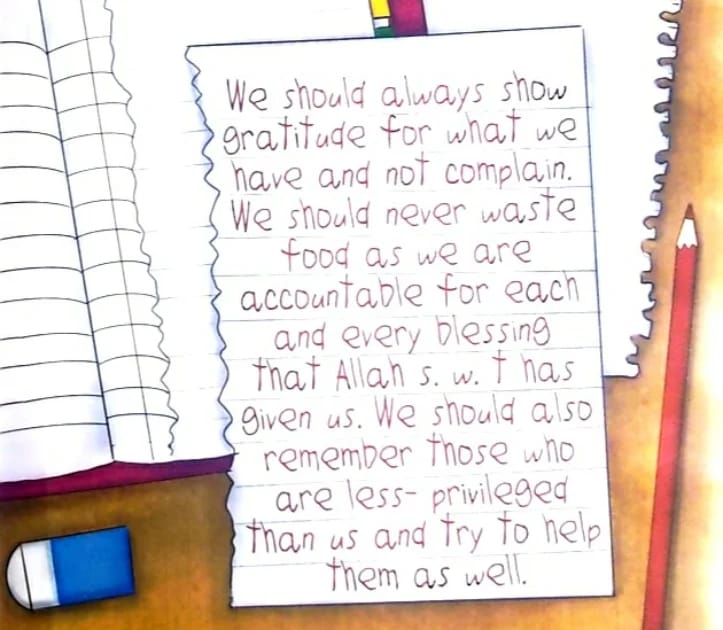 We should always show
gratitude for what we
have and not complain.
We should never waste
food as we are
accountable for each
and every blessing
that Allah s. w. t has
given us. We should also
remember those who
are less- privileged
than us and try to help
them as well.